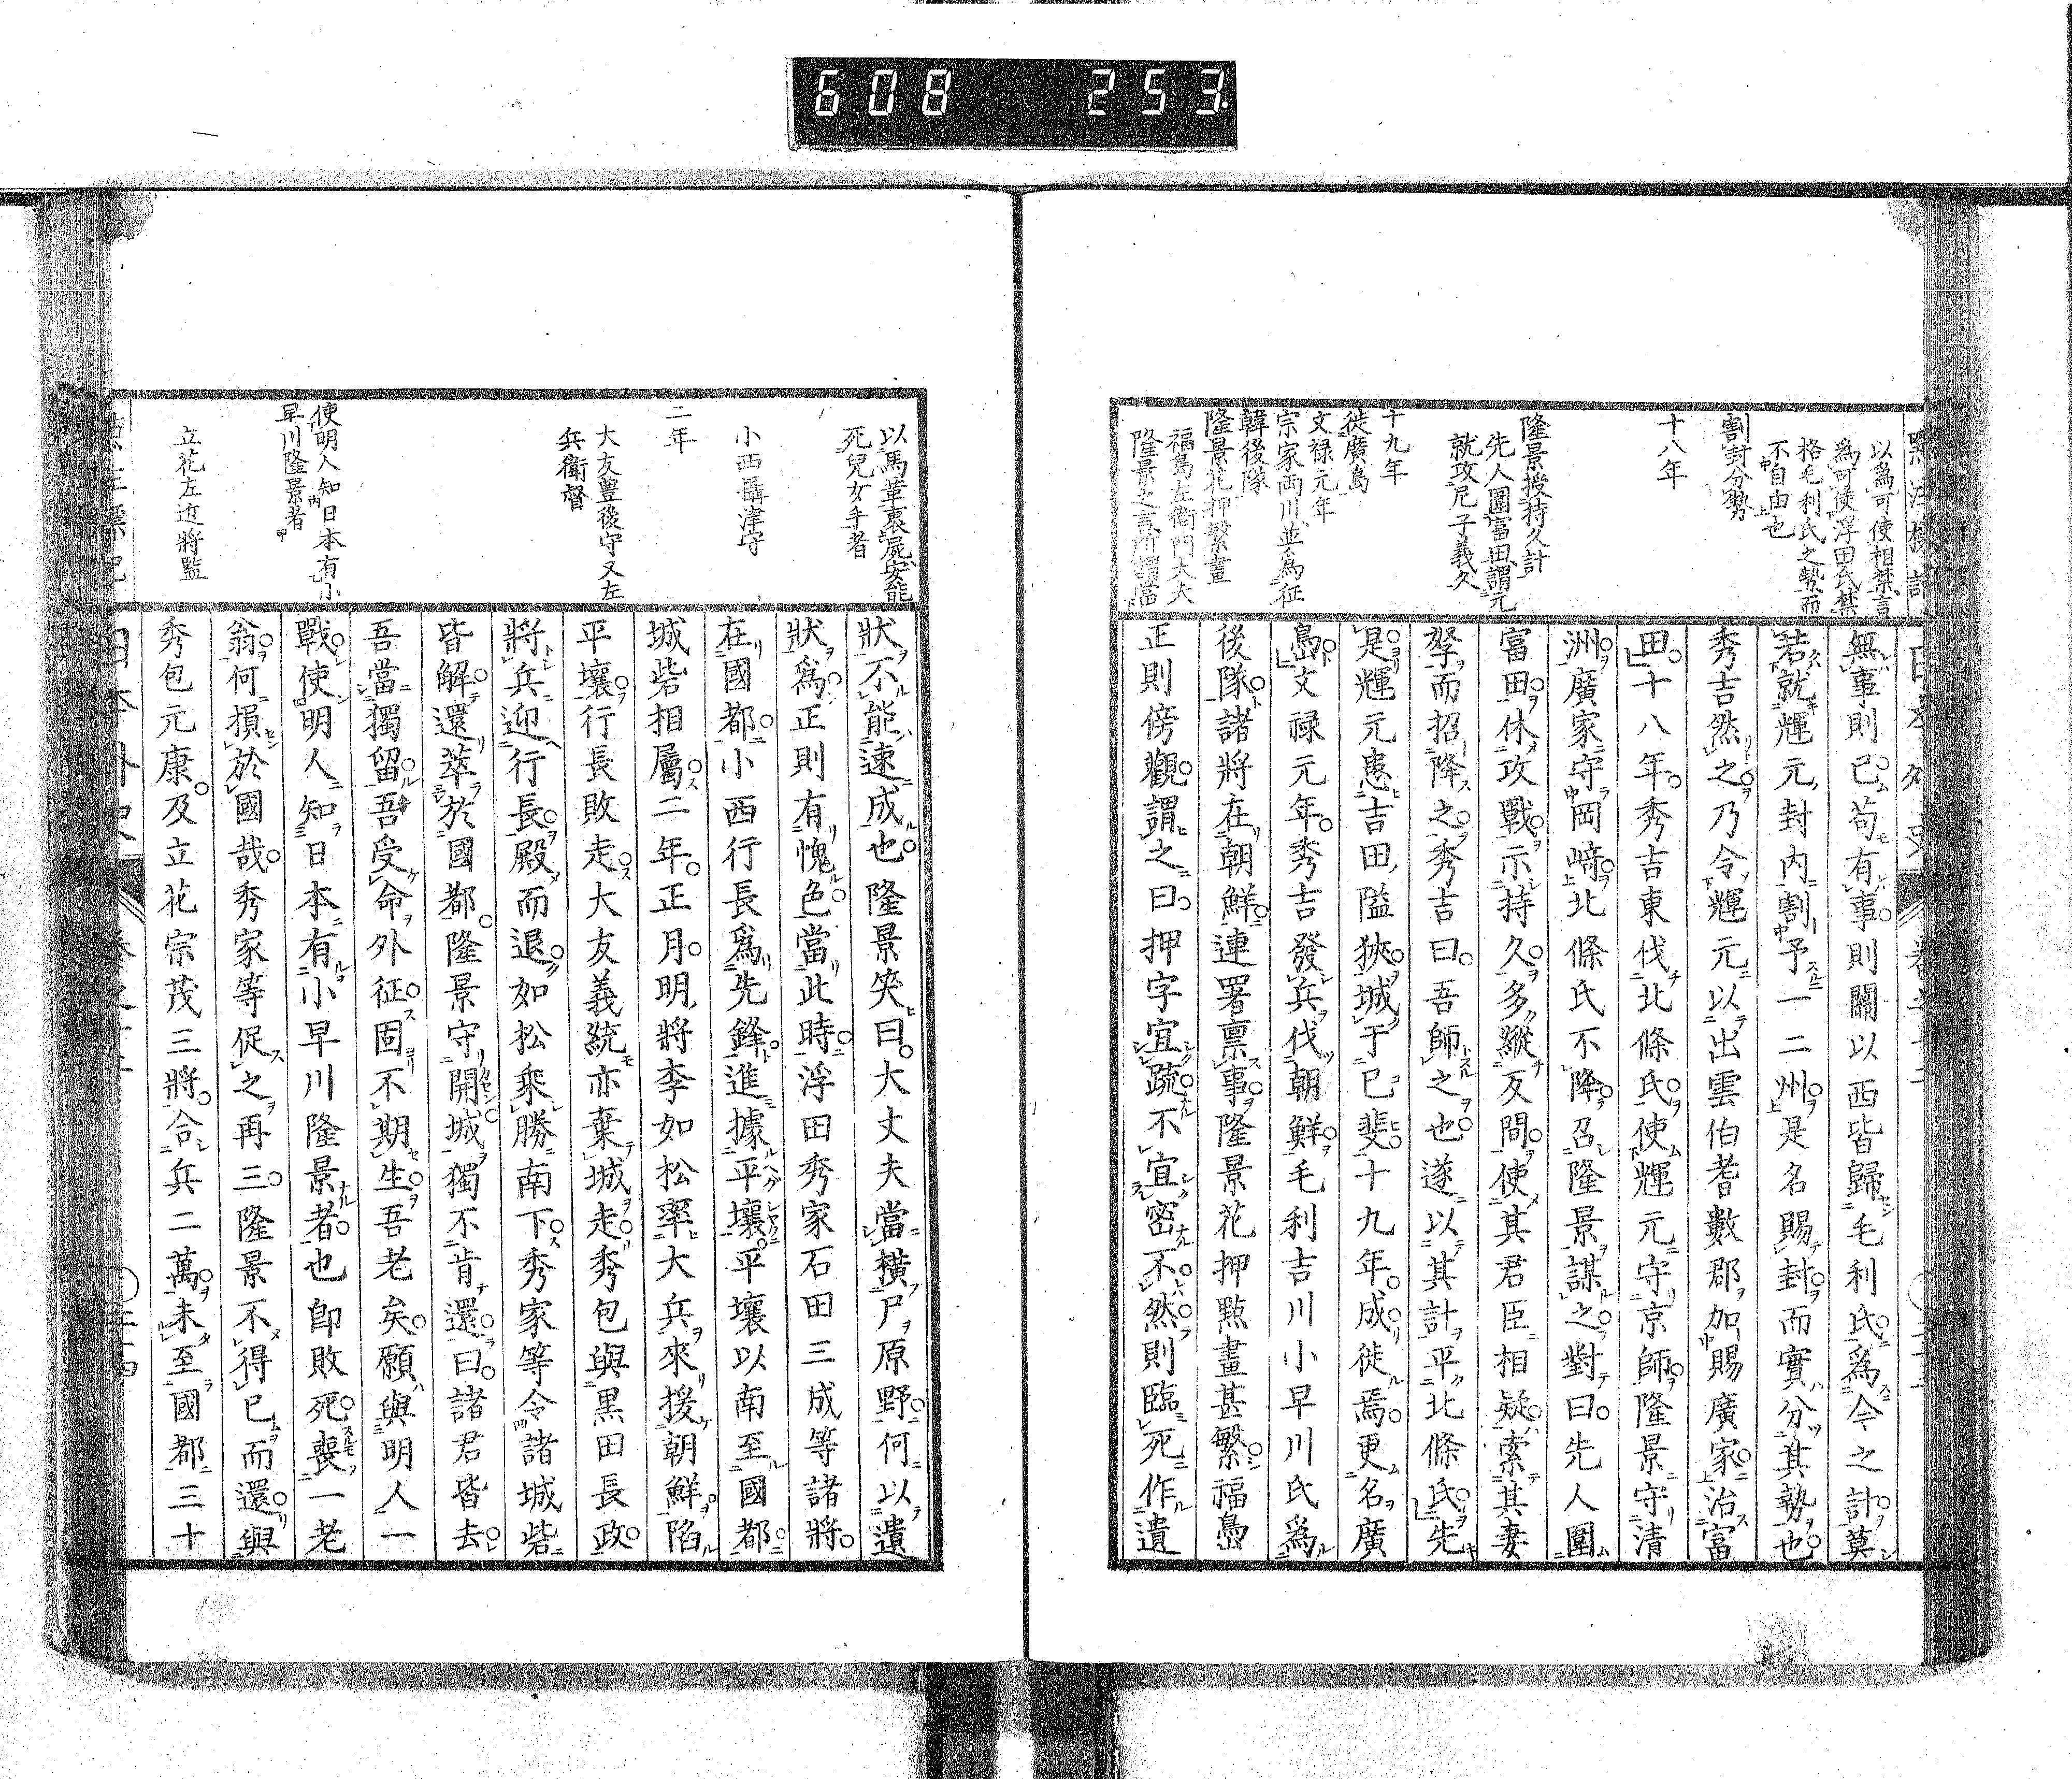 608 253
以爲可使相禁言
爲可使浮田氏禁
格毛利氏之勢而
不自由也
割封分勢
十八年
隆景授持久計
先人圍富田謂元
就攻尼子義久
十九年
徙廣島
文禄元年
宗家両川並爲征
韓後隊
隆景花押繁畫
福島左衛門大夫
隆景之言所謂當
無事則已苟有事則關以西皆歸毛利氏爲今之計莫
若就輝元封内割予一二州是名賜封而實分其勢也
秀吉然之乃令輝元以出雲伯耆數郡加賜廣家治富
田十八年秀吉東伐北條氏使輝元守京師隆景守清
洲廣家守岡﨑北條氏不降召隆景謀之對曰先人圍
富田休攻戰示持久多縱反間使其君臣相疑索其妻
孥而招降之秀吉曰吾師之也遂以其計平北條氏先
是輝元患吉田隘狹城于已斐十九年成徙焉更名廣
島文禄元年秀吉發兵伐朝鮮毛利吉川小早川氏爲
後隊諸將在朝鮮連署禀事隆景花押點畫甚繁福島
正則傍觀謂之曰押字宜疏不宜密不然則臨死作遺
以馬革裹屍安能
死兒女手者
小西攝津守
二年
大友豊後守又左
兵衛督
使明人知日本有小
早川隆景者
立花左近將監
狀不能速成也隆景笑曰大丈夫當横尸原野何以遺
狀爲正則有愧色當此時浮田秀家石田三成等諸將
在國都小西行長爲先鋒進據平壤平壤以南至國都
城砦相屬二年正月明將李如松率大兵來援朝鮮陷
平壤行長敗走大友義統亦棄城走秀包與黒田長政
將兵迎行長殿而退如松乘勝南下秀家等令諸城砦
皆解還萃於國都隆景守開城獨不肯還曰諸君皆去
吾當獨留吾受命外征固不期生吾老矣願與明人一
戰使明人知日本有小早川隆景者也卽敗死喪一老
翁何損於國哉秀家等促之再三隆景不得已而還與
秀包元康及立花宗茂三將合兵二萬未至國都三十